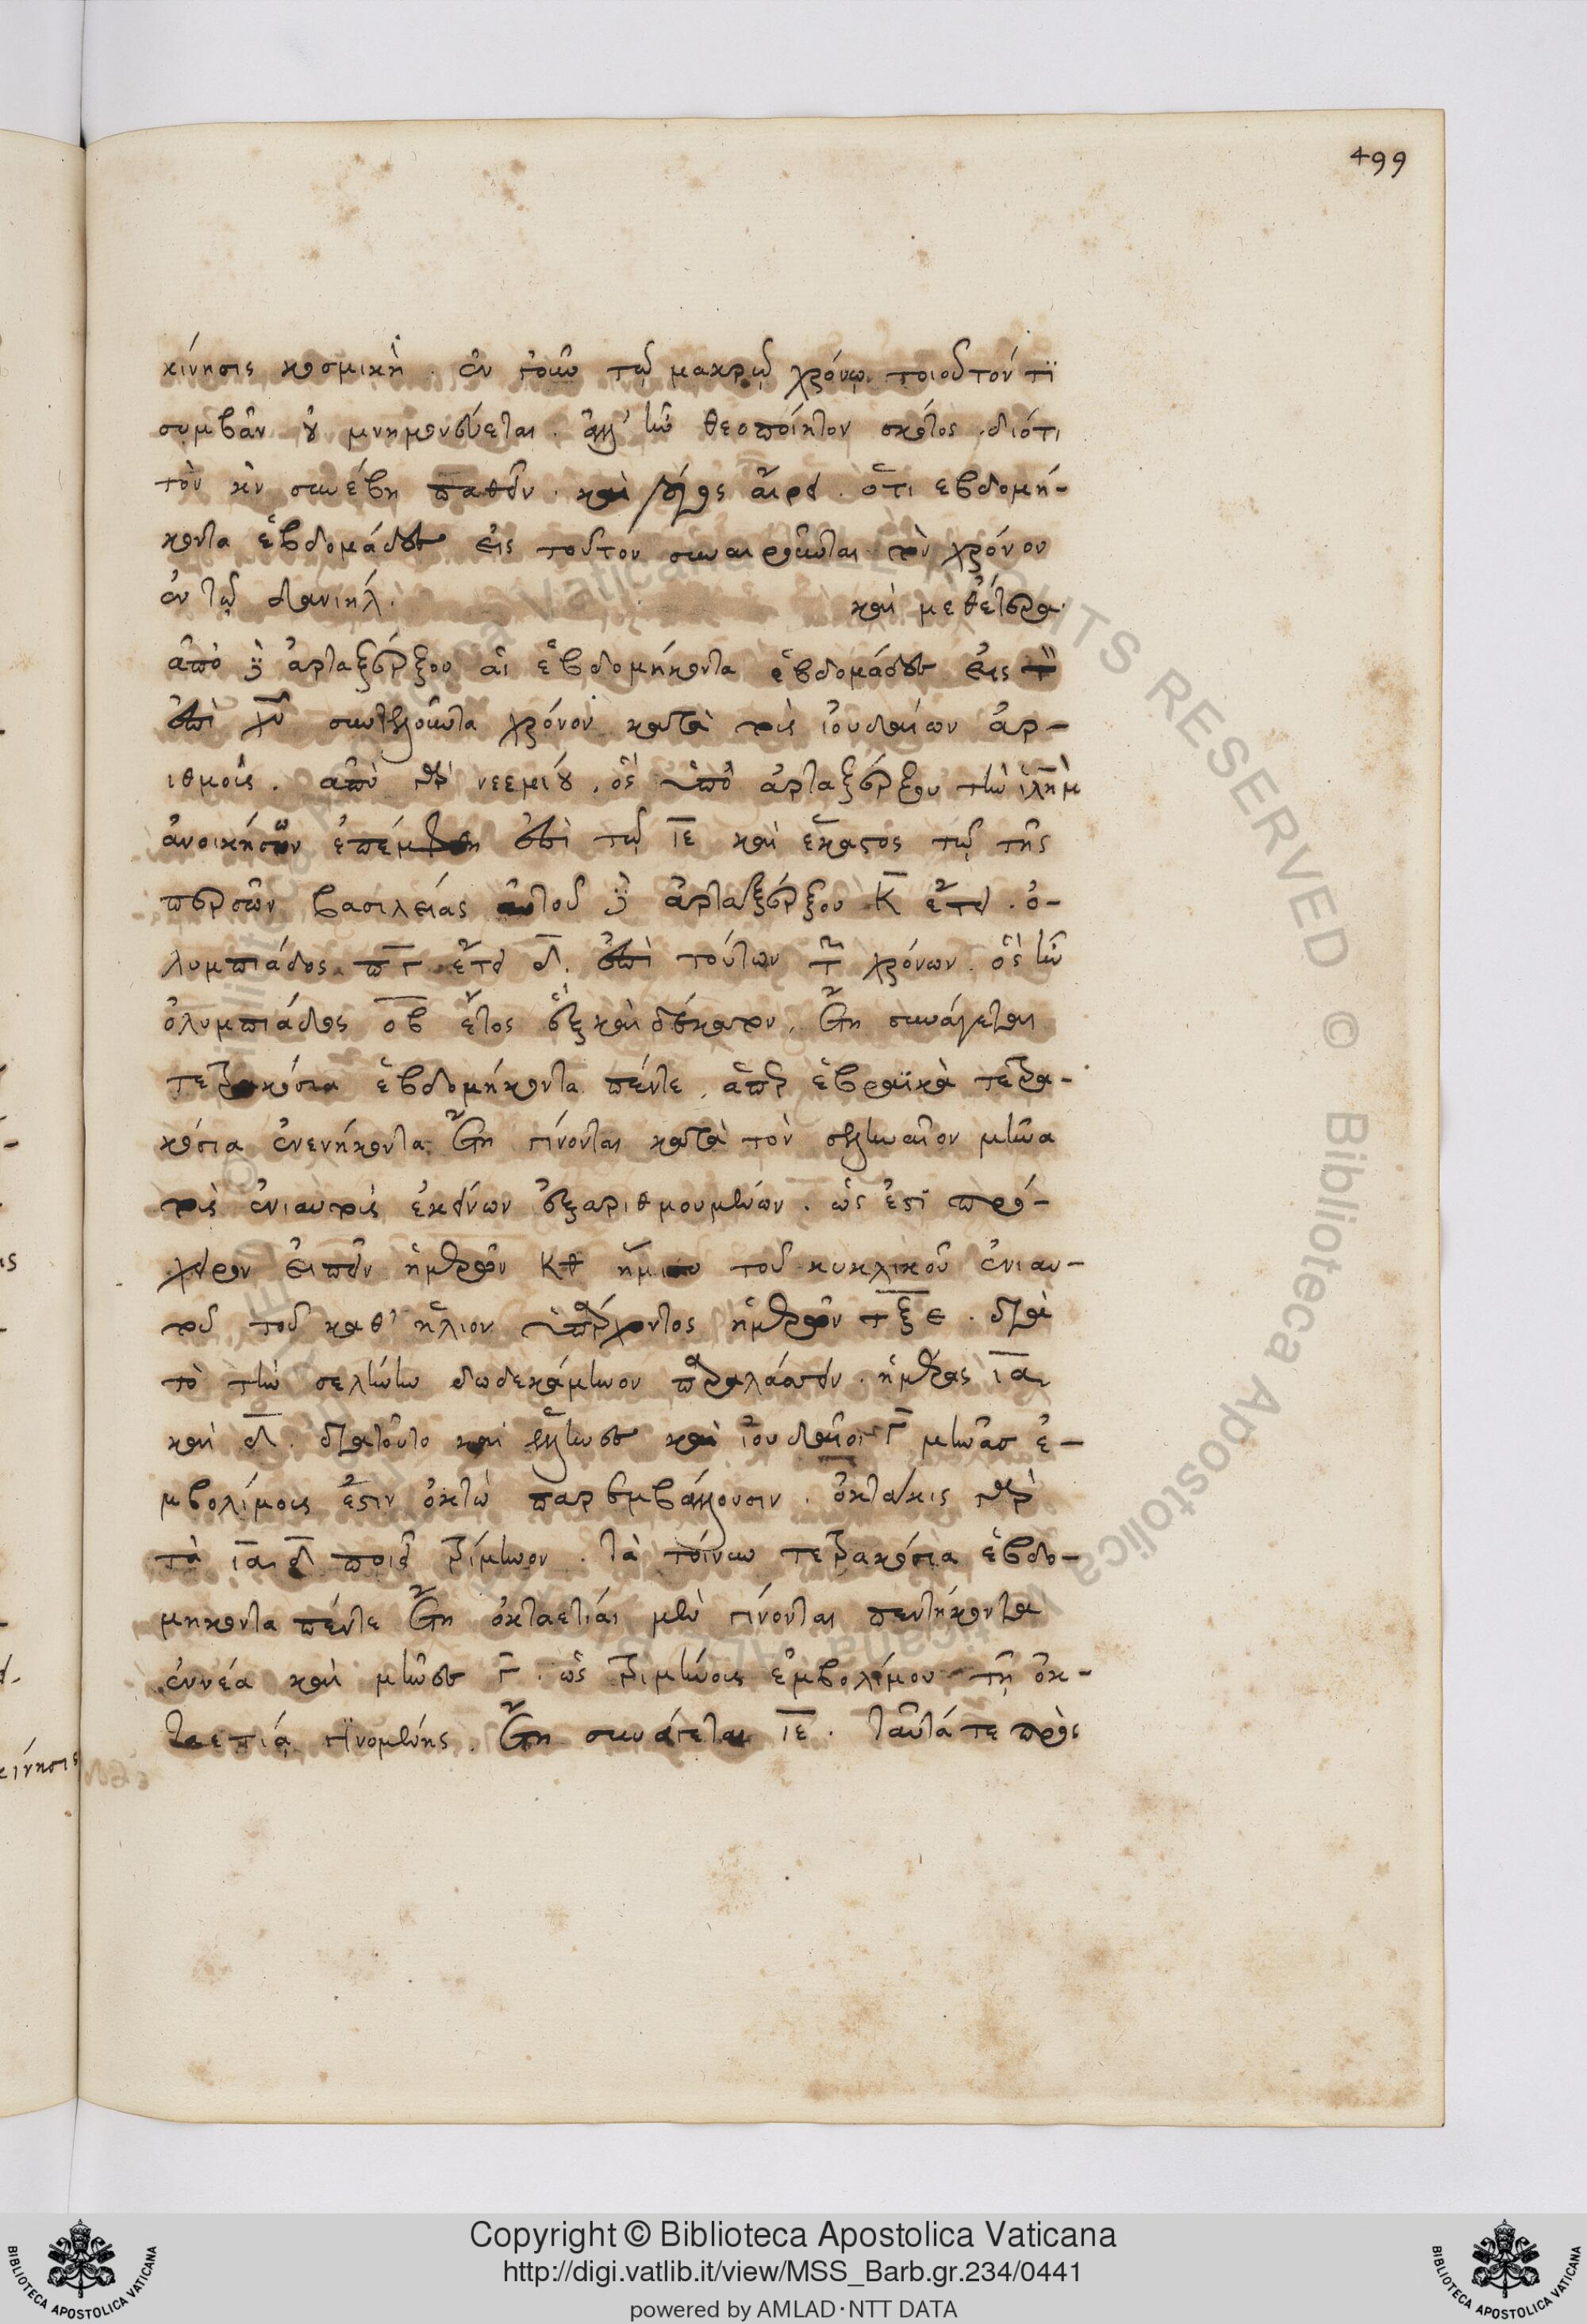 499
κίνησις κοσμικὴ. ἐν τοίνυν τῷ μακρῷ χρόνῳ τοιοῦτόν τι
συμβὰν οὐ μνημονεύεται. ἀλλ' ἦν θεοποίητον σκότος. διότι
τὸν κν συνέβη παθεῖν. καὶ λόγος αἱρεῖ. ὅτι εβδομή-
κοντα ἑβδομάδες εἰς τοῦτον συναιροῦνται τὸν χρόνον
ἐν τῷ δανιήλ. καὶ μεθέτερα
ἀπὸ δὲ ἀρταξέρξου αἱ ἑβδομήκοντα ἑβδομάδες εἰς τὸν
ἐπὶ χυ συντελοῦνται χρόνον κατὰ τοὺς ἰουδαίων ἀρ-
ιθμοὺς. ἀπὸ γὰρ νεεμίου. ὃς ὑπὸ ἀρταξέρξου τὴν ιλημ
ἀνοικήσων ἐπέμφθη ἐπὶ τῷ ιε καὶ ἑκατὸς τῷ τῆς
περσῶν βασιλείας αὐτοῦ δὲ ἀρταξέρξου κ ἔτει. ὀ-
λυμπιάδος πγ ἔτει δ. ἐπὶ τούτων τῶν χρόνων. ὃς ἦν
ὀλυμπιάδος σβ ἔτος ἑξκαιδέκατον. ἔτη συνάγεται
τετρακόσια ἑβδομήκοντα πέντε. ἅπερ ἑβραϊκὰ τετρα-
κόσια ἐνενήκοντα ἔτη γίνονται κατὰ τὸν σεληναῖον μῆνα
τοὺς ἐνιαυτοὺς ἐκείνων ἐξαριθμουμένων. ὡς ἐστὶ πρό-
χειρον εἰπεῖν ἡμερῶν κθ ἥμισυ τοῦ κυκλικοῦ ἐνιαυ-
τοῦ τοῦ καθ' ἥλιον ὑπάρχοντος ἡμερῶν τξε. διὰ
τὸ τὴν σελήνην δωδεκάμηνον παραλάσσειν. ἡμέρας ια
καὶ δ. διατοῦτο καὶ ἕλληνες καὶ ἰουδαῖοι γ μῆνας ἐ-
μβολίμους ἔτεσιν ὀκτὼ παρεμβάλλουσιν. ὀκτάκις γὰρ
τὰ ια δ ποιεῖ τρίμηνον. τὰ τοίνυν τετρακόσια ἑβδο-
μηκοντα πέντε ἔτη ὀκταετίαι μὲν γίνονται πεντήκοντα
ἐννέα καὶ μῆνες γ. ὡς τριμήνους ἐμβολίμου τῇ ὀκ-
ταετίᾳ γινομένης. ἔτη συνάγεται ιε. ταῦτά τε πρὸς
Copyright © Biblioteca Apostolica Vaticana
http://digi.vatlib.it/view/MSS_Barb.gr.234/0441
powered by AMLAD·NTT DATA